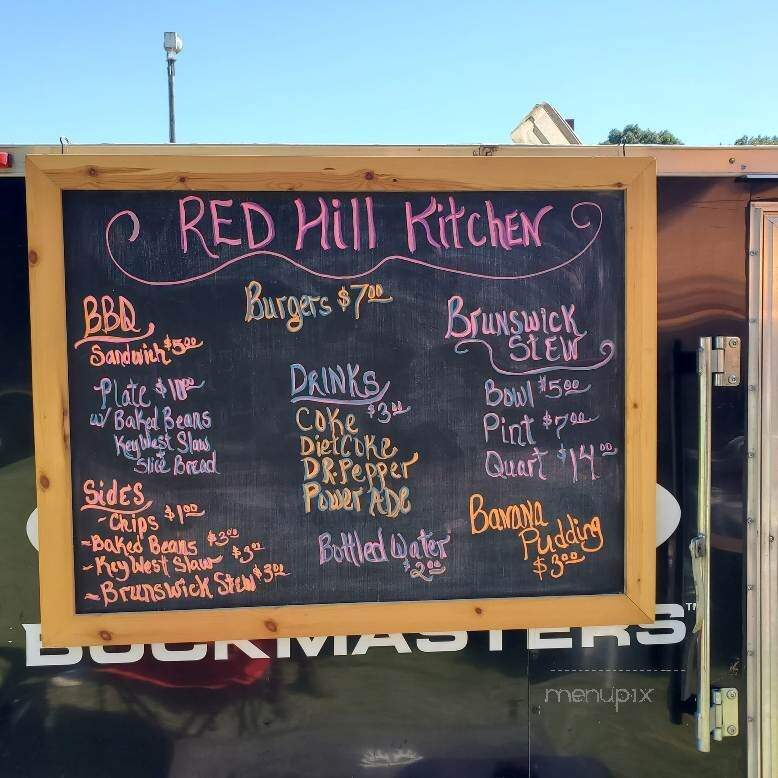 RED Hill Kitchen
BBQ
Sandwich $5.00
Plate $10.00
w/ Baked Beans
Key West Slaw
Slice Bread
Sides
~Chips $1.00
~Baked Beans $3.00
~Key West Slaw $3.00
~Brunswick Stew $3.00
Burgers $7.00
DRINKS
COKE $3.00
Diet COKE
DR. Pepper
Power ADE
Bottled Water
$2.00
BRUNSWICK
STEW
Bowl $5.00
Pint $7.00
Quart $14.00
Banana
Pudding
$3.00
BUCKMASTERS™
menupix